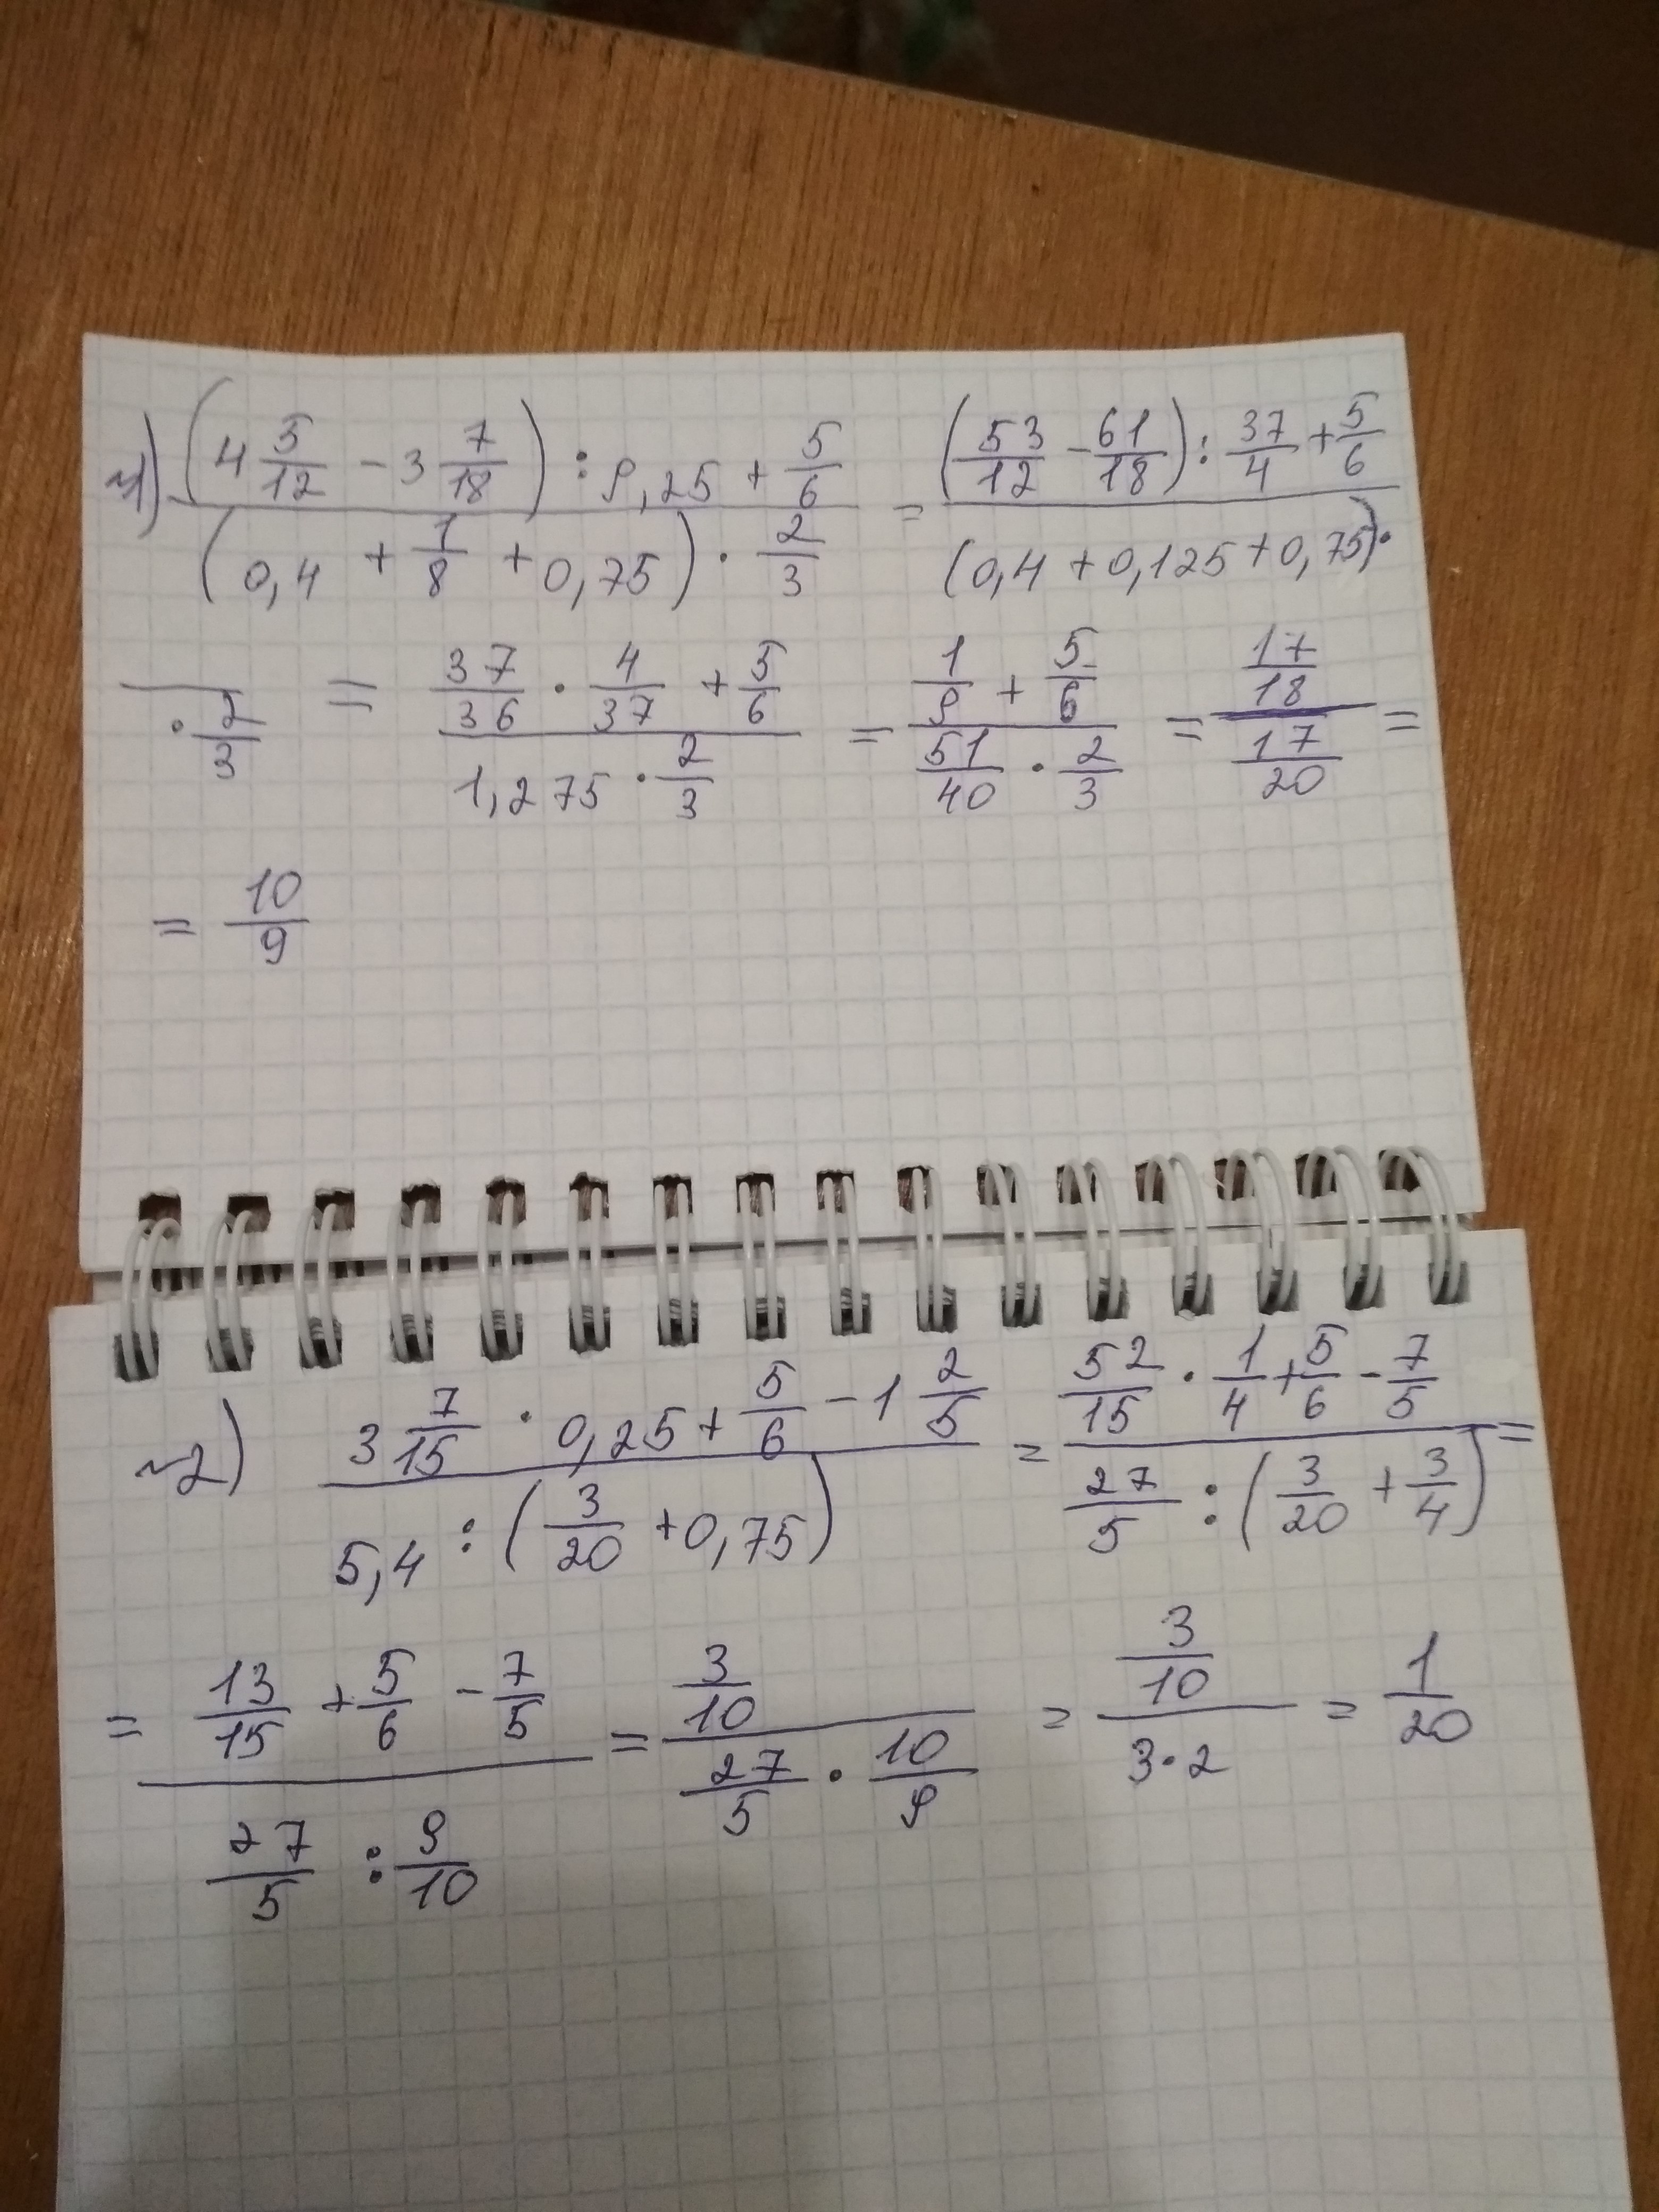 1) ((4 5/12 - 3 7/18) : 9,25 + 5/6) / ((0,4 + 1/8 + 0,75) · 2/3) = ((53/12 - 61/18) : 37/4 + 5/6) / ((0,4 + 0,125 + 0,75) ·
· 2/3) = (37/36 · 4/37 + 5/6) / (1,275 · 2/3) = (1/9 + 5/6) / (51/40 · 2/3) = (17/18) / (17/20) =
= 10/9
~2) (3 7/15 · 0,25 + 5/6 - 1 2/5) / (5,4 : (3/20 + 0,75)) = (52/15 · 1/4 + 5/6 - 7/5) / (27/5 : (3/20 + 3/4)) =
= (13/15 + 5/6 - 7/5) / (27/5 : 9/10) = (3/10) / (27/5 · 10/9) = (3/10) / (3·2) = 1/20